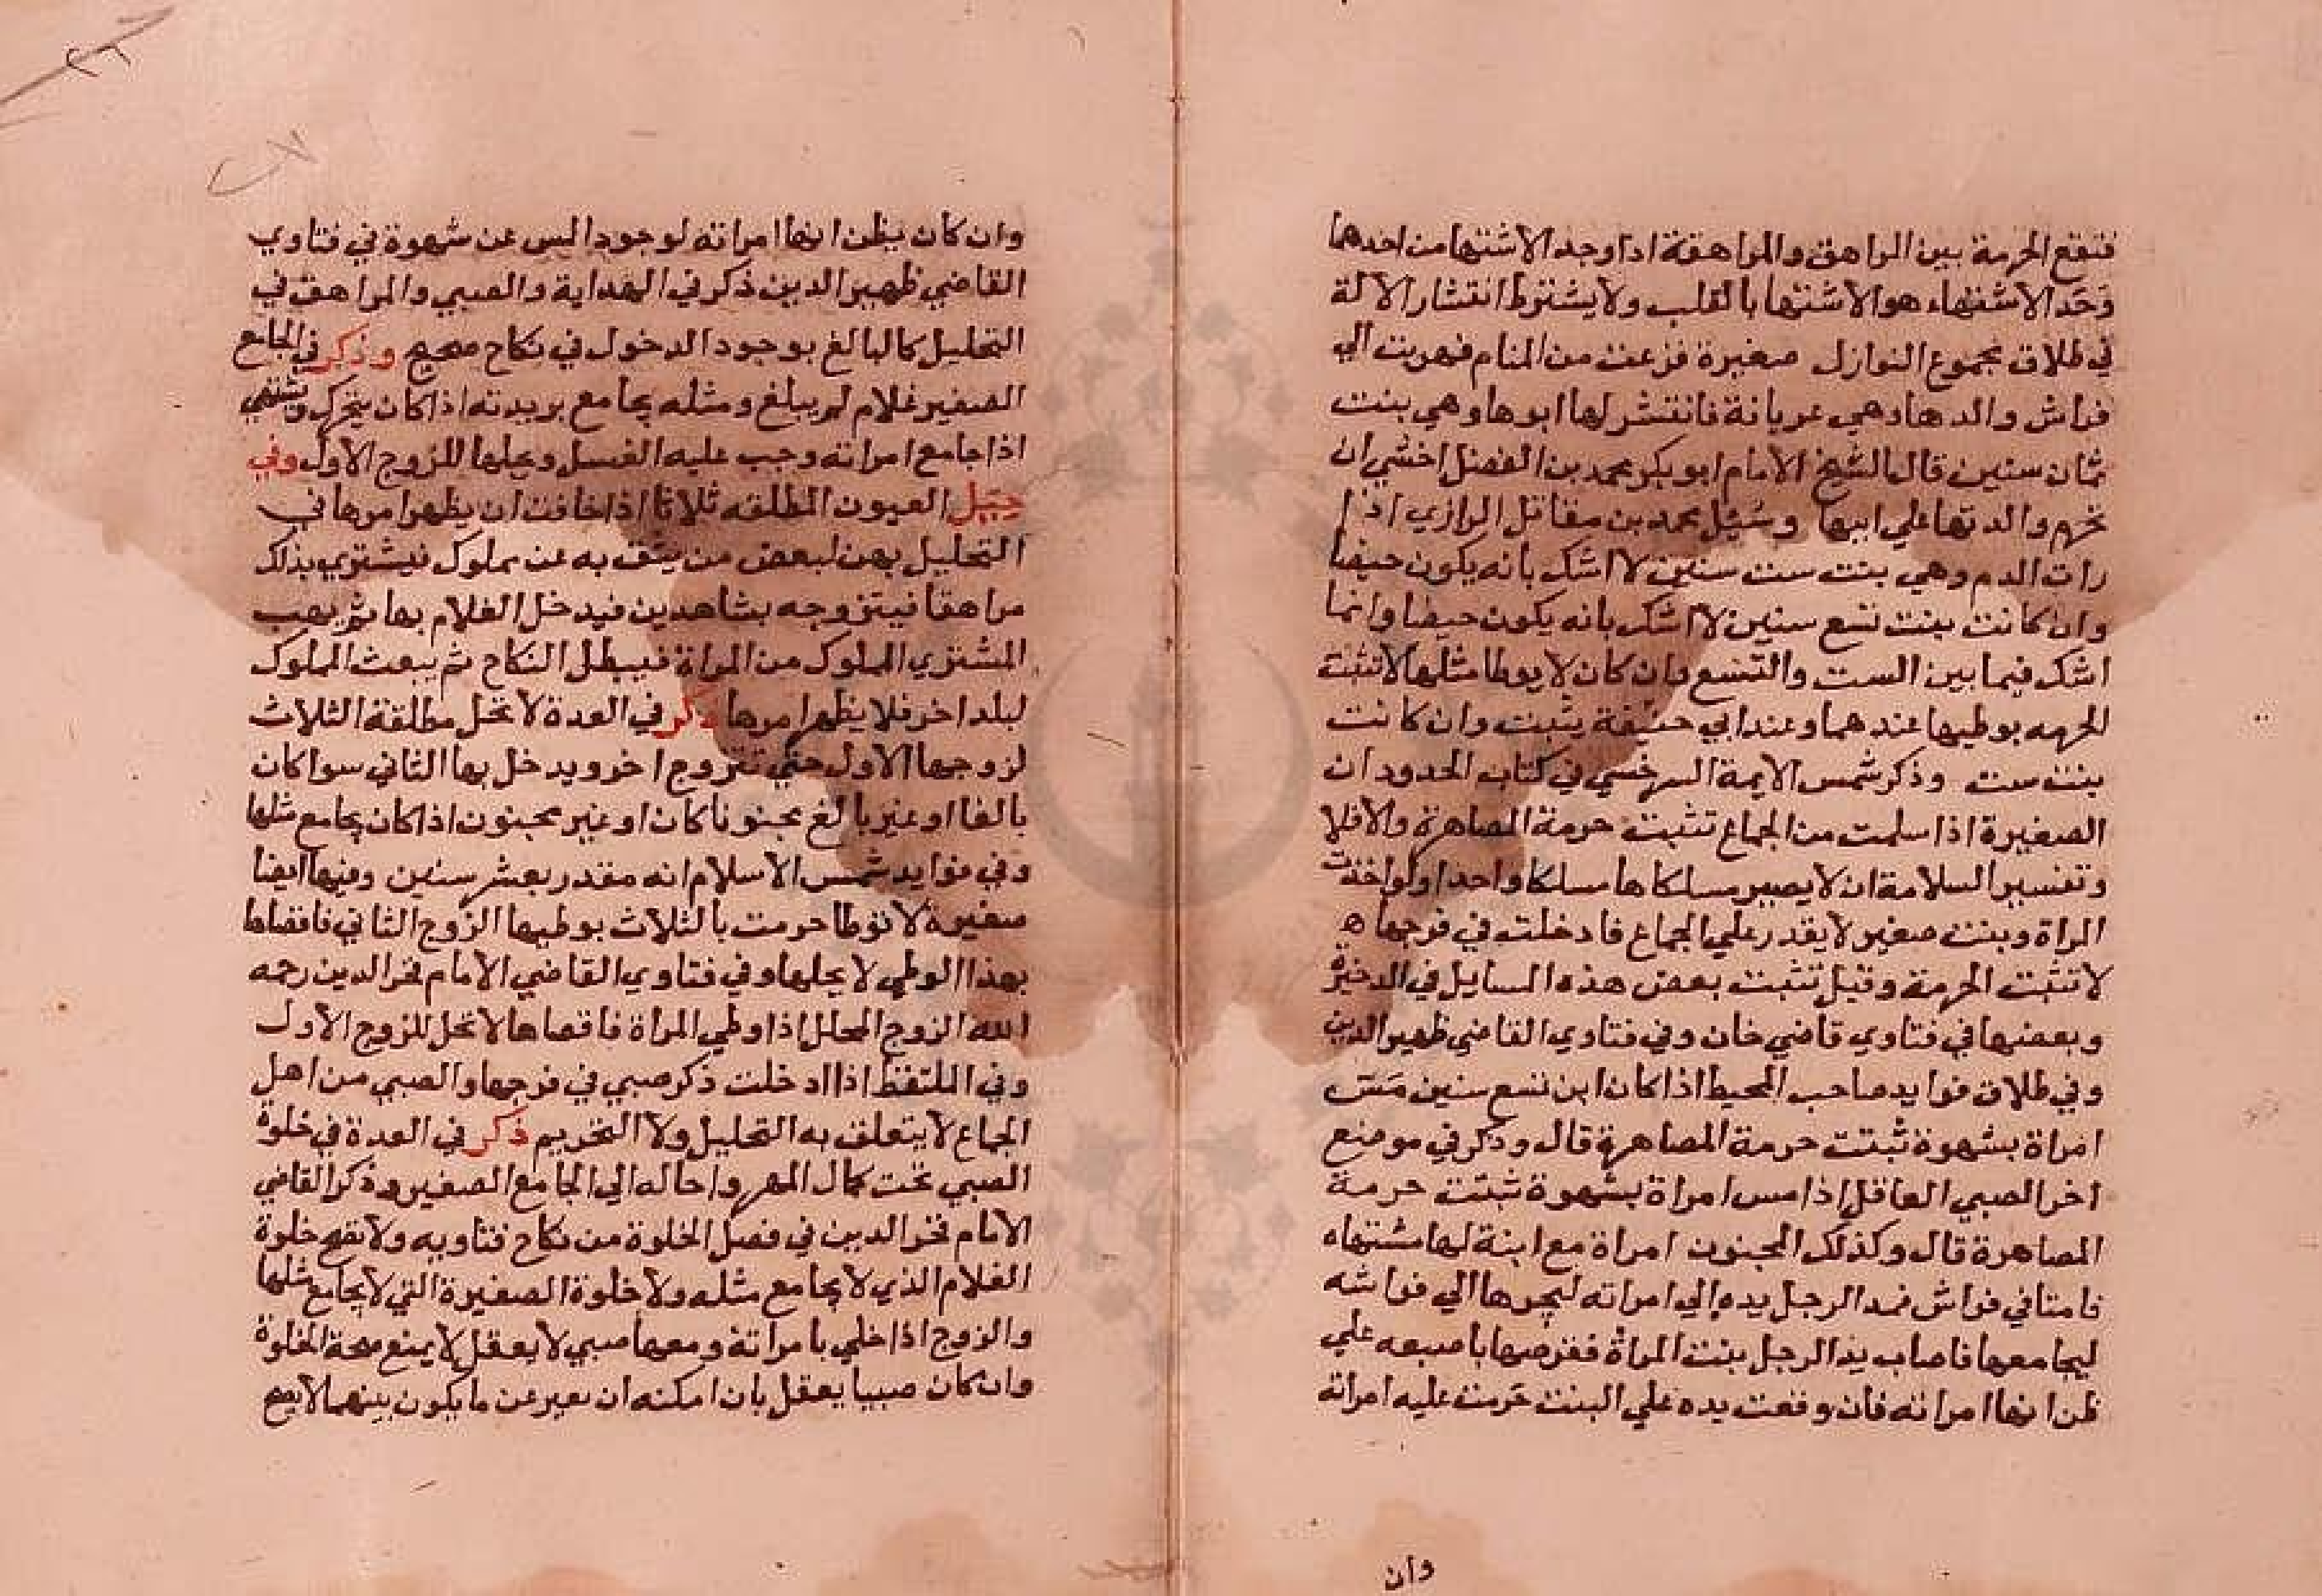 فتقع الحرمة بين المراهق والمراهقة اذا وجد الاشتها من احدهما
وَحَد الاشتهاء هو الاشتها بالقلب ولا يشترط انتشار الالة
في طلاق مجموع النوازل صغيرة فزعت من المنام فهربت الي
فراش والدها وهي عريانة فانتشر لها ابوها وهي بنت
ثمان سنين قال الشيخ الامام ابو بكر محمد بن الفضل اخشي ان
تحرم والدتها علي ابيها وسُئِل محمد بن مقاتل الرازي اذا
رات الدم وهي بنت ست سنين لا اشك بانه يكون حيضا
وان كانت بنت تسع سنين لا اشك بانه يكون حيضا وانما
اشك فيما بين الست والتسع وان كان لا يوطا مثلها لا تثبت
الحرمه بوطيها عندهما وعند ابي حنيفة يثبت وان كانت
بنت ست وذكر شمس الايمة السرخسي في كتاب الحدود ان
الصغيرة اذا سلمت من الجماع تثبت حرمة المصاهرة والا فلا
وتفسير السلامة ان لا يصير مسلكاها مسلكا واحدا ولو اخذت
المراة وبنت صغير لا يقدر علي الجماع فادخلت في فرجها ه
لا تثبت الحرمة وقيل تثبت بعض هذه المسايل في الدخيرة
وبعضها في فتاوي قاضي خان وفي فتاوي القاضي ظهير الدين
وفي طلاق فوايد صاحب المحيط اذا كان ابن تسع سنين مَسّ
امراة بشهوة ثبتت حرمة المصاهرة قال وذكر في موضع
اخر الصبي العاقل اذا مس امراة بشهوة ثبتت حرمة
المصاهرة قال وكذلك المجنون امراة مع ابنة لها مشتهاه
نامتا في فراش فمد الرجل يده الي امراته ليجرها الي فراشه
ليجامعها فاصاب يد الرجل بنت المراة فقرصها باصبعه علي
ظن انها امراته فان وقعت يده علي البنت حَرمت عليه امراته
وان
وان كان يظن انها امراته لوجود المس عن شهوة في فتاوي
القاضي ظهير الدين ذكر في الهداية والصبي والمراهق في
التحليل كالبالغ بوجود الدخول في نكاح صحيح وذكر في الجامع
الصغير غلام لم يبلغ ومثله يجامع يريد به اذا كان يتحرك ويشتهي
اذا جامع امراته وجب عليه الغسل ويحلها للزوج الاول وفي
حِيَل العيون المطلقه ثلاثا اذا خافت ان يظهر امرها في
التحليل يهن لبعض من يثق به عن مملوك فيشتري بذلك
مراهقا فيتزوجه بشاهدين فيدخل الغلام بها ثم يهب
المشتري المملوك من المراة فيبطل النكاح ثم يبعث المملوك
لبلد اخر فلا يظهر امرها ذكر في العدة لا تحل مطلقة الثلاث
لزوجها الاول حتي تتزوج اخر ويدخل بها الثاني سوا كان
بالغا او غير بالغ مجنونا كان او غير مجنون اذا كان يجامع مثلها
وفي فوايد شمس الاسلام انه مقدر بعشر سنين وفيها ايضا
صغيرة لا توطا حرمت بالثلاث بوطيها الزوج الثاني فافضاها
بهذا الوطي لا يحلها وفي فتاوي القاضي الامام فخر الدين رحمه
الله الزوج المحلل اذا وطي المراة فافضاها لا تحل للزوج الاول
وفي الملتقظ اذا ادخلت ذكر صبي في فرجها والصبي من اهل
الجماع لا يتعلق به التحليل ولا التحريم ذكر في العدة في خلوة
الصبي تحت كمال المهر واحاله الي الجامع الصغير وذكر القاضي
الامام فخر الدين في فصل الخلوة من نكاح فتاويه ولا تصح خلوة
الغلام الذي لا يجامع مثله ولا خلوة الصغيرة التي لا يجامع مثلها
والزوج اذا خلي بامراته ومعها صبي لا يعقل لا يمنع صحة الخلوة
وان كان صبيا يعقل بان امكنه ان يعبر عن ما يكون بينهما لا يصح